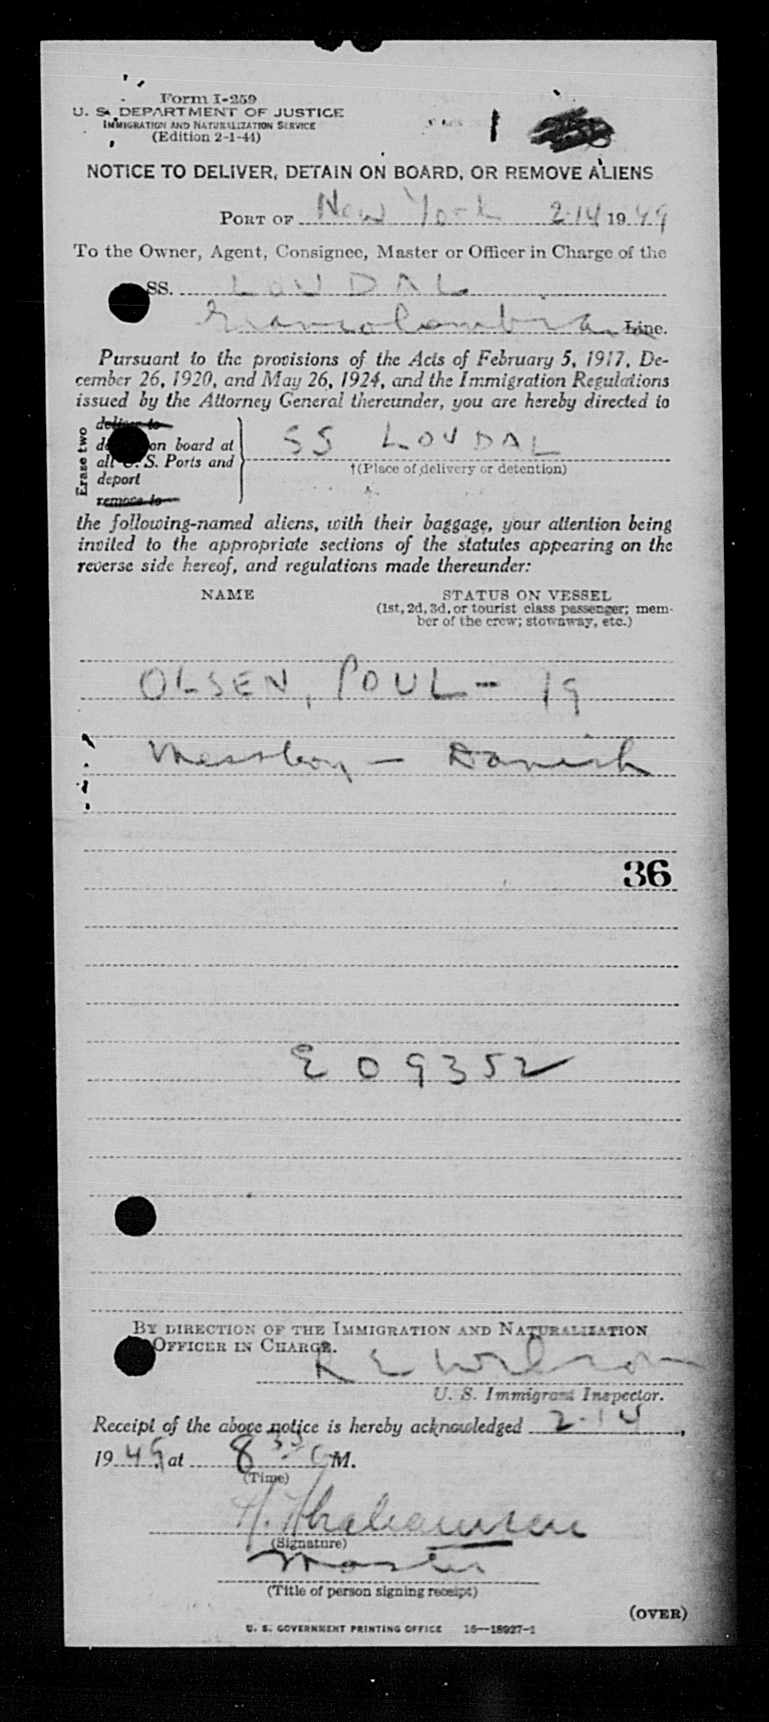 Form I-259
U. S. DEPARTMENT OF JUSTICE
IMMIGRATION AND NATURALIZATION SERVICE
(Edition 2-1-44)
1
NOTICE TO DELIVER, DETAIN ON BOARD, OR REMOVE ALIENS
PORT OF New York 2-14 1949
To the Owner, Agent, Consignee, Master or Officer in Charge of the
SS. LOVDAL
Grancolombiana Line.
Pursuant to the provisions of the Acts of February 5, 1917, De-
cember 26, 1920, and May 26, 1924, and the Immigration Regulations
issued by the Attorney General thereunder, you are hereby directed to
Erase two
deliver to
on board at
all U. S. Ports and
deport
remove to
SS LOVDAL
†(Place of delivery or detention)
the following-named aliens, with their baggage, your attention being
invited to the appropriate sections of the statutes appearing on the
reverse side hereof, and regulations made thereunder:
NAME STATUS ON VESSEL
(1st, 2d, 3d, or tourist class passenger; mem-
ber of the crew; stowaway, etc.)
OLSEN, POUL - 19
Messboy - Danish
36
E 09352
BY DIRECTION OF THE IMMIGRATION AND NATURALIZATION
OFFICER IN CHARGE.
R E Wilson
U. S. Immigrant Inspector.
Receipt of the above notice is hereby acknowledged 2-14,
1949 at 8 35 M.
(Time)
H. Abrahamsen
(Signature)
Master
(Title of person signing receipt)
(OVER)
U. S. GOVERNMENT PRINTING OFFICE 16—18927-1